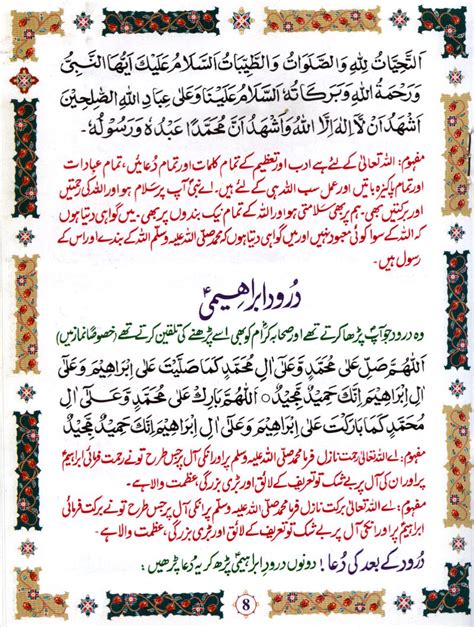 اَلتَّحِيَّاتُ لِلّٰهِ وَالصَّلَوَاتُ وَالطَّيِّبَاتُ اَلسَّلَامُ عَلَيْكَ اَيُّهَا النَّبِىُّ
وَرَحْمَةُ اللّٰهِ وَبَرَكَاتُهٗ اَلسَّلَامُ عَلَيْنَا وَعَلٰى عِبَادِ اللّٰهِ الصّٰلِحِيْنَ
اَشْهَدُ اَنْ لَّا اِلٰهَ اِلَّا اللّٰهُ وَاَشْهَدُ اَنَّ مُحَمَّدًا عَبْدُهٗ وَرَسُوْلُهٗ۔
مفہوم: اللہ تعالیٰ کے لئے ہے ادب اور تعظیم کے تمام کلمات اور تمام دُعائیں، تمام عبادات
اور تمام پاکیزہ باتیں اور عمل سب اللہ ہی کے لئے ہیں۔ اے نبیؐ آپ پر سلام ہو اور اللہ کی رحمتیں
اور برکتیں بھی، ہم پر بھی سلامتی ہو اور اللہ کے تمام نیک بندوں پر بھی۔ میں گواہی دیتا ہوں
کہ اللہ کے سوا کوئی معبود نہیں اور میں گواہی دیتا ہوں کہ محمد صلی اللہ علیہ وسلم اللہ کے بندے اور اس کے
رسول ہیں۔
دُرودِ ابراہیمیؑ
وہ درود جو آپؐ پڑھا کرتے تھے اور صحابہ کرام کو بھی اسے پڑھنے کی تلقین کرتے تھے (خصوصاً نماز میں)
اَللّٰهُمَّ صَلِّ عَلٰى مُحَمَّدٍ وَّعَلٰٓى اٰلِ مُحَمَّدٍ كَمَا صَلَّيْتَ عَلٰٓى اِبْرَاهِيْمَ وَعَلٰٓى
اٰلِ اِبْرَاهِيْمَ اِنَّكَ حَمِيْدٌ مَّجِيْدٌ ○ اَللّٰهُمَّ بَارِكْ عَلٰى مُحَمَّدٍ وَّعَلٰٓى اٰلِ
مُحَمَّدٍ كَمَا بَارَكْتَ عَلٰٓى اِبْرَاهِيْمَ وَعَلٰٓى اٰلِ اِبْرَاهِيْمَ اِنَّكَ حَمِيْدٌ مَّجِيْدٌ
مفہوم: اے اللہ تعالیٰ رحمت نازل فرما محمد صلی اللہ علیہ وسلم پر اور انکی آل پر جس طرح تو نے رحمت فرمائی ابراہیمؑ
پر اور ان کی آل پر بے شک تو تعریف کے لائق اور بڑی بزرگی، عظمت والا ہے۔
مفہوم: اے اللہ تعالیٰ برکت نازل فرما محمد صلی اللہ علیہ وسلم پر اور انکی آل پر جس طرح تو نے برکت فرمائی
ابراہیمؑ پر اور انکی آل پر بے شک تو تعریف کے لائق اور بڑی بزرگی، عظمت والا ہے۔
دُرود کے بعد کی دُعا! دونوں درودِ ابراہیمیؑ پڑھ کر یہ دُعا پڑھیں:
8